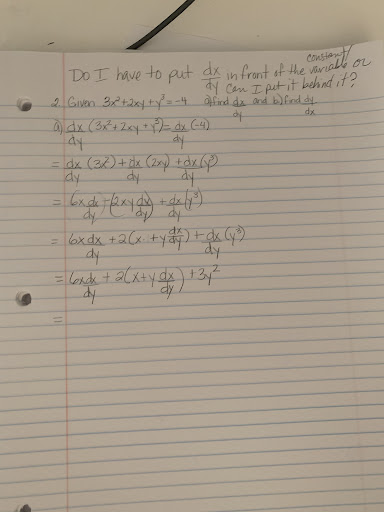 Do I have to put dx/dy in front of the constant/variable or can I put it behind it?
2. Given 3x²+2xy+y³=-4 a) find dx/dy and b) find dy/dx
a) dx/dy (3x²+2xy+y³)=dx/dy(-4)
= dx/dy (3x²)+dx/dy (2xy)+dx/dy(y³)
= 6x dx/dy + (2xy dx/dy) + dx/dy(y³)
= 6x dx/dy + 2(x·+y dx/dy)+dx/dy(y³)
= 6x dx/dy + 2(x+y dx/dy)+3y²
=